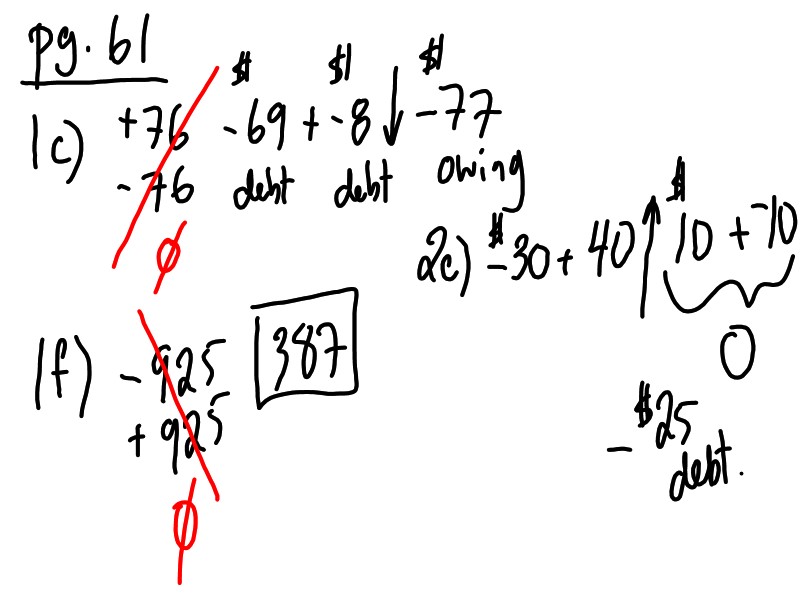 pg. 61
1c) +76 -69 + -8 ↓ -77
-76 debt debt owing
Ø
2c) $-30 + 40 ↑ $10 + -10
0
1f) -925 387
+925
Ø
-$25
debt.